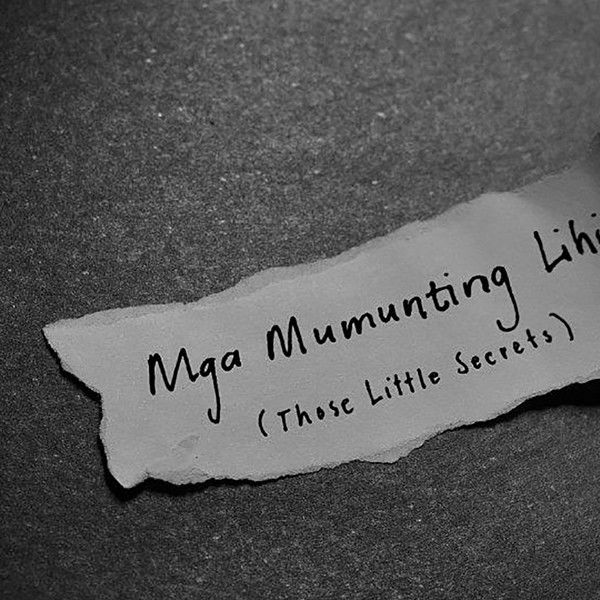 Mga Mumunting Lihi
(Those Little Secrets)